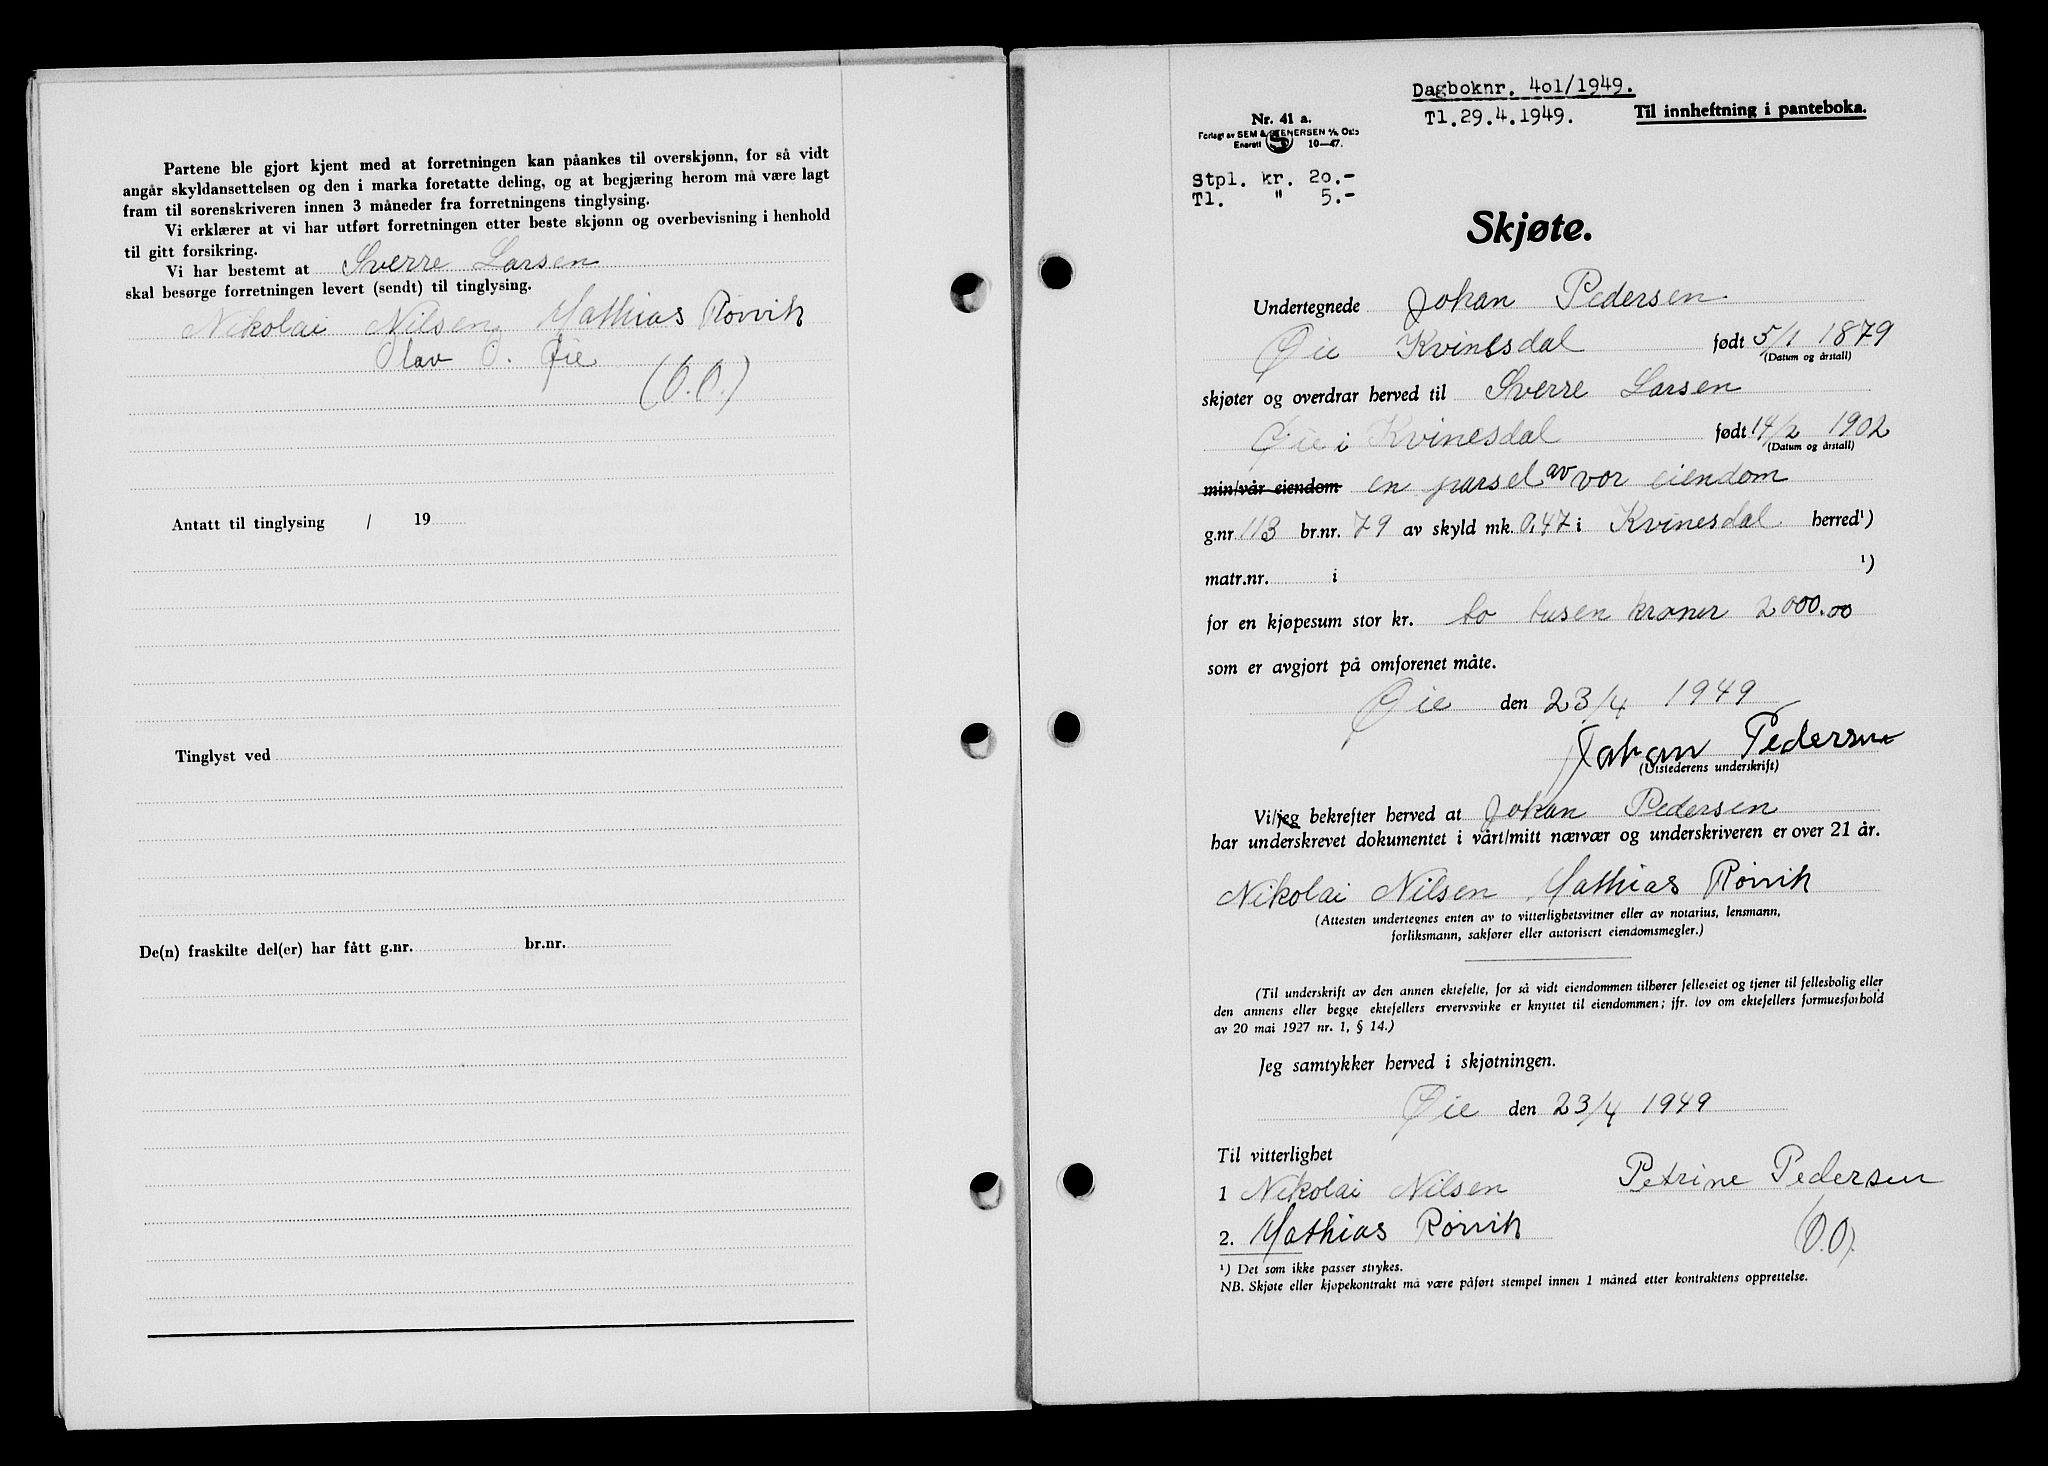 Partene ble gjort kjent med at forretningen kan påankes til overskjønn, for så vidt
angår skyldansettelsen og den i marka foretatte deling, og at begjæring herom må være lagt
fram til sorenskriveren innen 3 måneder fra forretningens tinglysing.
Vi erklærer at vi har utført forretningen etter beste skjønn og overbevisning i henhold
til gitt forsikring.
Vi har bestemt at Sverre Larsen
skal besørge forretningen levert (sendt) til tinglysing.
Nikolai Nilsen, Mathias Rørvik
Olav O. Øie
(O.O.)
Antatt til tinglysing / 19
Tinglyst ved
De(n) fraskilte del(er) har fått g.nr. br.nr.
Dagboknr. 401/1949.
Tl.29.4.1949. Til innheftning i panteboka.
Nr. 41 a.
Forlagt av SEM & STENERSEN A/S, Oslo
Enerett S 10—47.
Stpl. kr. 20.-
Tl. " 5.-
Skjøte.
Undertegnede Johan Pedersen
Øie Kvinesdal født 5/1 1879
(Datum og årstall)
skjøter og overdrar herved til Sverre Larsen
Øie i Kvinesdal født 14/2 1902
(Datum og årstall)
min/vår eiendom en parsel av vor eiendom
g.nr 113 br.nr. 79 av skyld mk. 0,47 i Kvinesdal herred¹)
matr.nr. i ¹)
for en kjøpesum stor kr. to tusen kroner 2000.00
som er avgjort på omforenet måte.
Øie den 23/4 1949
Johan Pedersen
(Utstederens underskrift)
Vi/jeg bekrefter herved at Johan Pedersen
har underskrevet dokumentet i vårt/mitt nærvær og underskriveren er over 21 år.
Nikolai Nilsen Mathias Rørvik
(Attesten undertegnes enten av to vitterlighetsvitner eller av notarius, lensmann,
forliksmann, sakfører eller autorisert eiendomsmegler.)
(Til underskrift av den annen ektefelle, for så vidt eiendommen tilhører felleseiet og tjener til fellesbolig eller
den annens eller begge ektefellers ervervsvirke er knyttet til eiendommen; jfr. lov om ektefellers formuesforhold
av 20 mai 1927 nr. 1, § 14.)
Jeg samtykker herved i skjøtningen.
Øie den 23/4 1949
Til vitterlighet
1 Nikolai Nilsen Petrine Pedersen
2. Mathias Rørvik (O.O).
¹) Det som ikke passer strykes.
NB. Skjøte eller kjøpekontrakt må være påført stempel innen 1 måned etter kontraktens opprettelse.